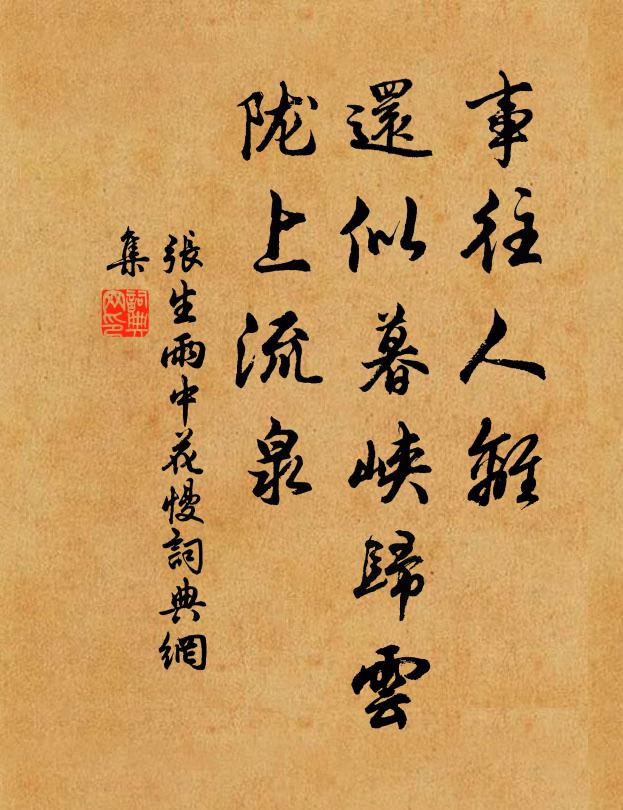 事往人離
還似暮峽歸雲
陇上流泉
張生雨中花慢詞典網
集
詞典网印